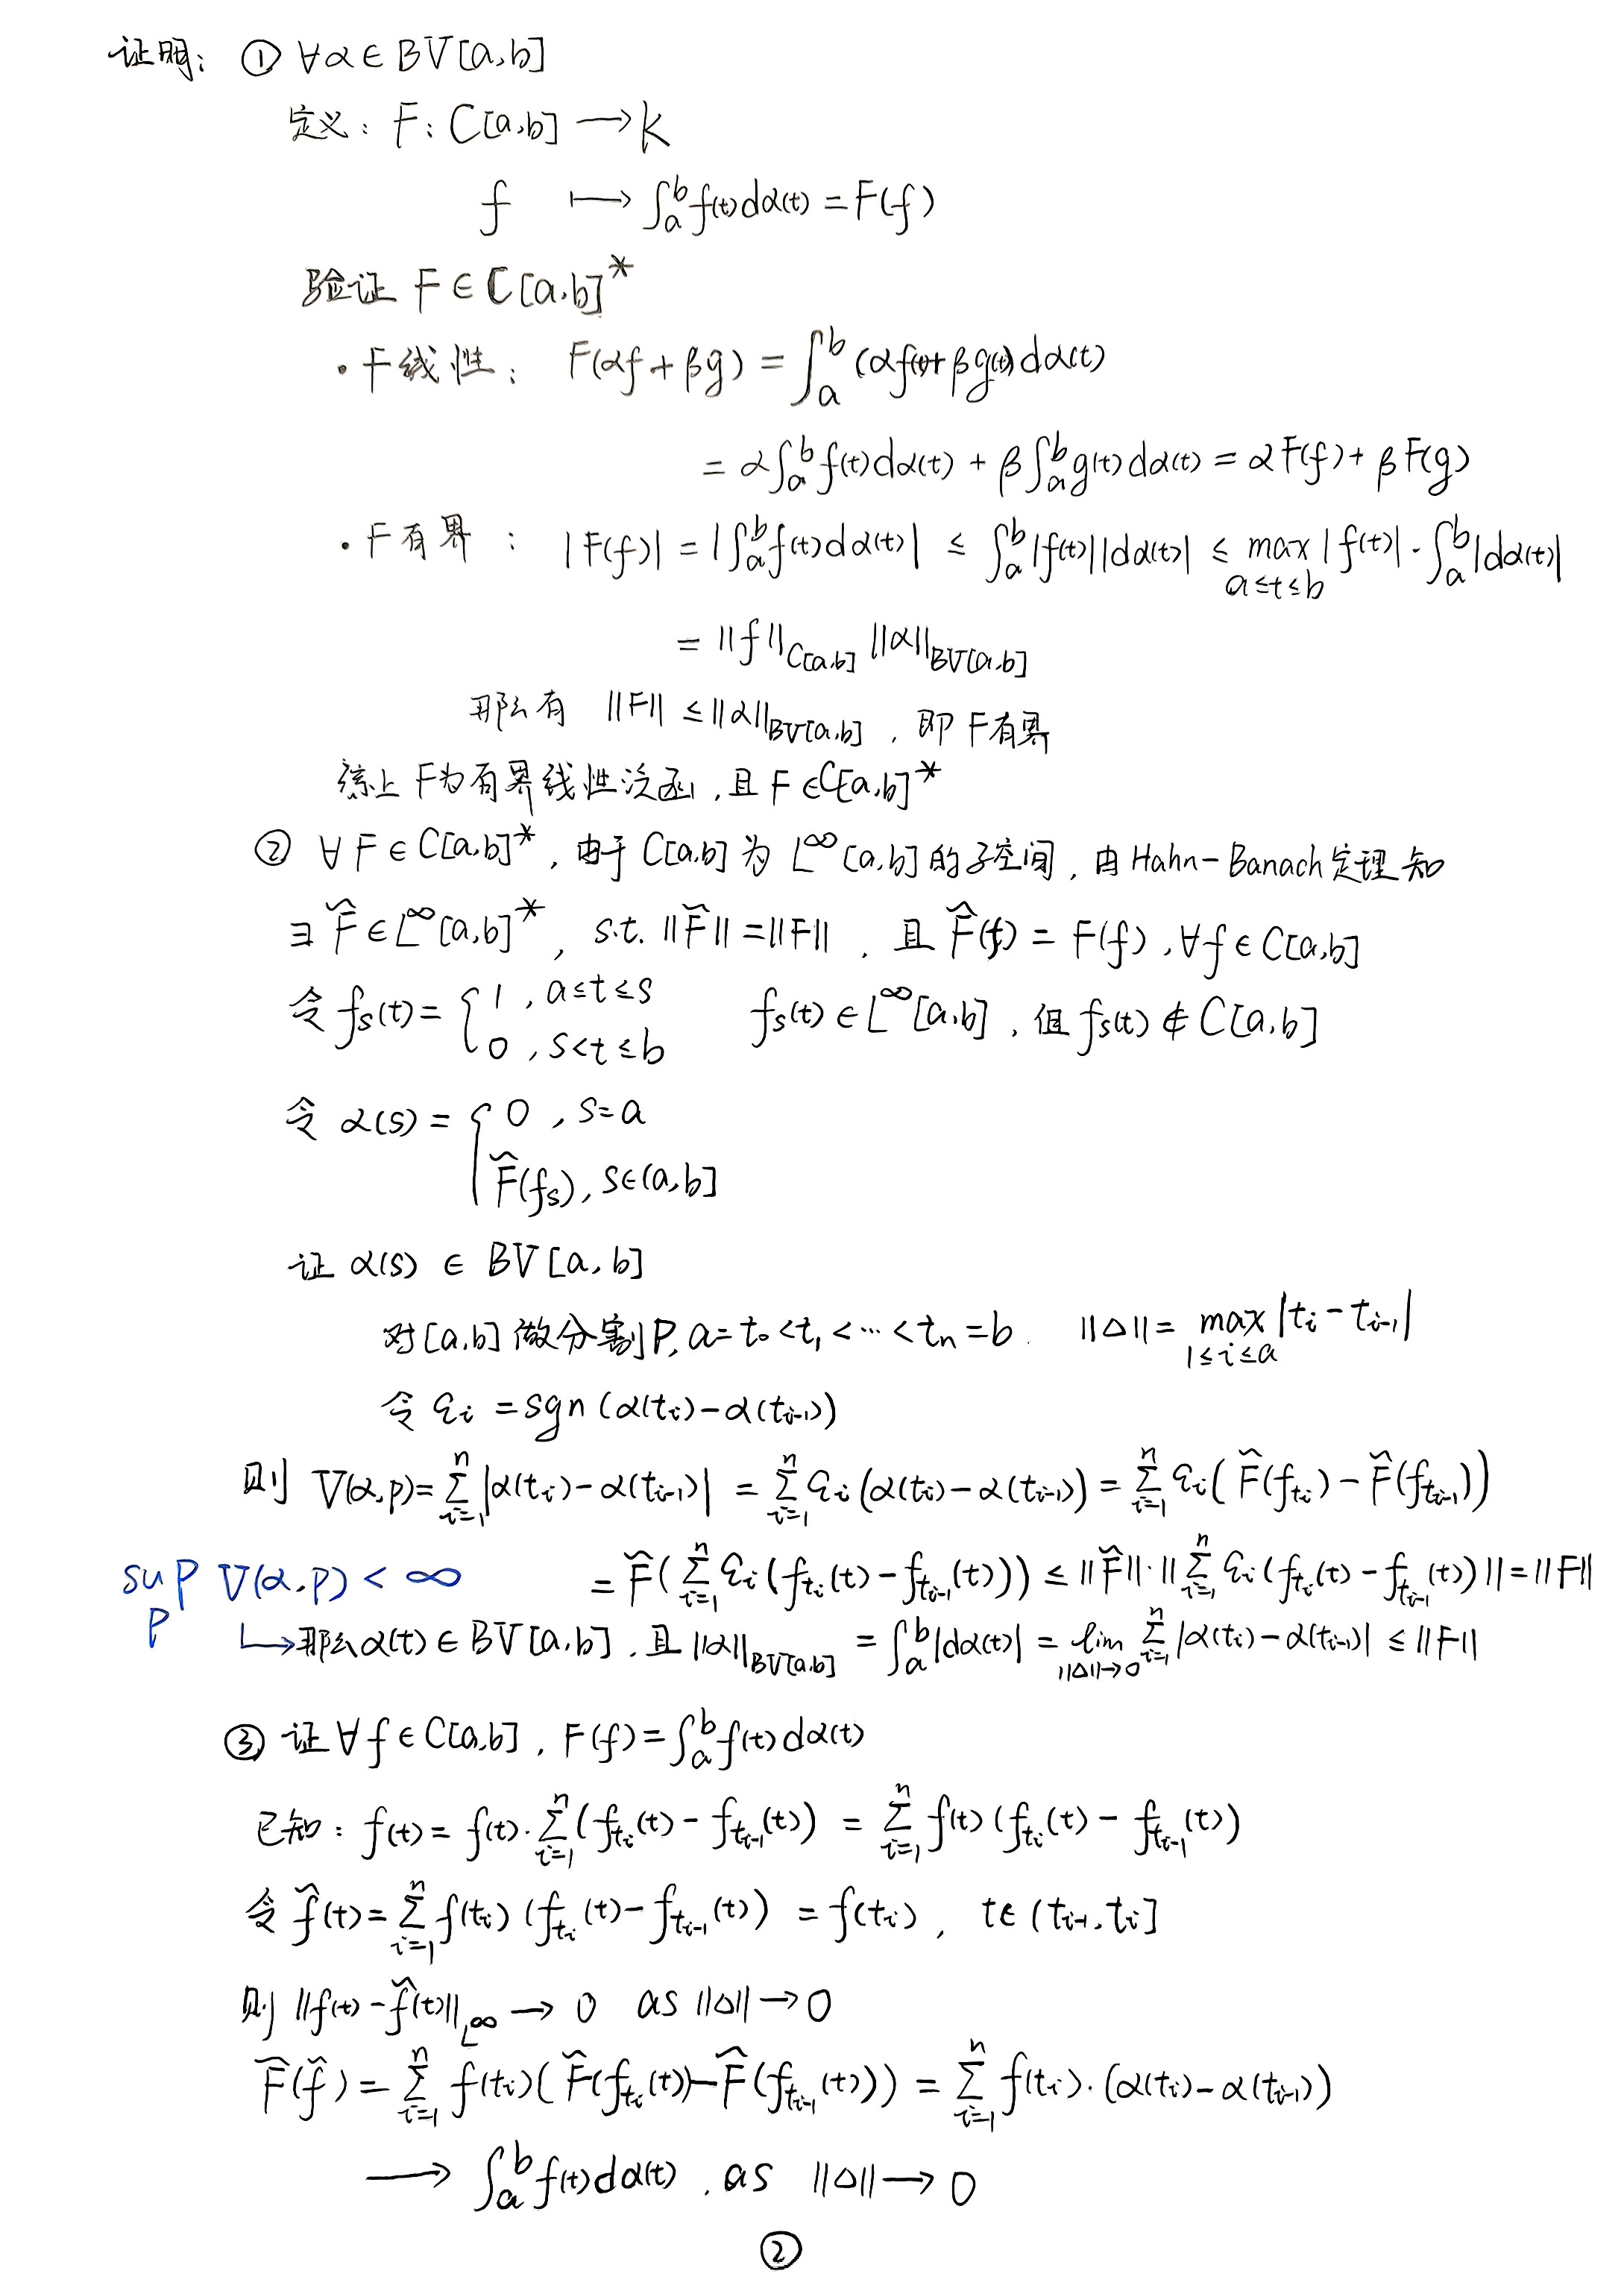 证明: ① ∀α∈BV[a,b]
定义: F: C[a,b] → K
f ⟼ ∫_a^b f(t)dα(t) = F(f)
验证 F ∈ C[a,b]*
· F线性: F(αf+βg) = ∫_a^b (αf(t)+βg(t))dα(t)
= α∫_a^b f(t)dα(t) + β∫_a^b g(t)dα(t) = αF(f)+βF(g)
· F有界: |F(f)| = |∫_a^b f(t)dα(t)| ≤ ∫_a^b |f(t)||dα(t)| ≤ max_{a≤t≤b} |f(t)| · ∫_a^b |dα(t)|
= ||f||_{C[a,b]} ||α||_{BV[a,b]}
那么有 ||F|| ≤ ||α||_{BV[a,b]}, 即F有界
综上F为有界线性泛函, 且F∈C[a,b]*
② ∀F∈C[a,b]*, 由于C[a,b]为L^∞[a,b]的子空间, 由Hahn-Banach定理知
∃ F̃∈L^∞[a,b]*, s.t. ||F̃|| = ||F||, 且 F̃(f) = F(f), ∀f∈C[a,b]
令 f_s(t) = { 1, a≤t≤s
0, s<t≤b f_s(t)∈L^∞[a,b], 但f_s(t)∉C[a,b]
令 α(s) = { 0, s=a
F̃(f_s), s∈(a,b]
证 α(s) ∈ BV[a,b]
对[a,b]做分割P, a=t_0<t_1<⋯<t_n=b. ||Δ|| = max_{1≤i≤a} |t_i-t_{i-1}|
令 ε_i = sgn(α(t_i)-α(t_{i-1}))
则 V(α,p) = ∑_{i=1}^n |α(t_i)-α(t_{i-1})| = ∑_{i=1}^n ε_i(α(t_i)-α(t_{i-1})) = ∑_{i=1}^n ε_i(F̃(f_{t_i})-F̃(f_{t_{i-1}}))
sup_p V(α,p) < ∞ = F̃(∑_{i=1}^n ε_i(f_{t_i}(t)-f_{t_{i-1}}(t))) ≤ ||F̃||·||∑_{i=1}^n ε_i(f_{t_i}(t)-f_{t_{i-1}}(t))|| = ||F||
↳ 那么α(t)∈BV[a,b], 且||α||_{BV[a,b]} = ∫_a^b |dα(t)| = lim_{||Δ||→0} ∑_{i=1}^n |α(t_i)-α(t_{i-1})| ≤ ||F||
③ 证∀f∈C[a,b], F(f) = ∫_a^b f(t)dα(t)
已知: f(t) = f(t)·∑_{i=1}^n (f_{t_i}(t)-f_{t_{i-1}}(t)) = ∑_{i=1}^n f(t)(f_{t_i}(t)-f_{t_{i-1}}(t))
令 f̃(t) = ∑_{i=1}^n f(t_i)(f_{t_i}(t)-f_{t_{i-1}}(t)) = f(t_i), t∈(t_{i-1},t_i]
则 ||f(t)-f̃(t)||_{L^∞} → 0 as ||Δ||→0
F̃(f̃) = ∑_{i=1}^n f(t_i)(F̃(f_{t_i}(t))-F̃(f_{t_{i-1}}(t))) = ∑_{i=1}^n f(t_i)·(α(t_i)-α(t_{i-1}))
→ ∫_a^b f(t)dα(t), as ||Δ||→0
②